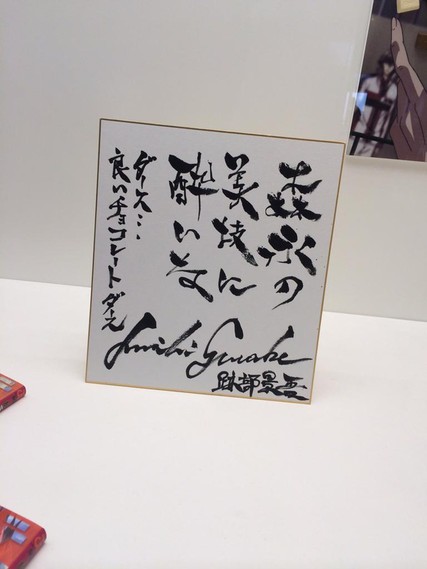 森永の
美技に
酔いな
ダース…
良いチョコレート ダース
跡部景吾